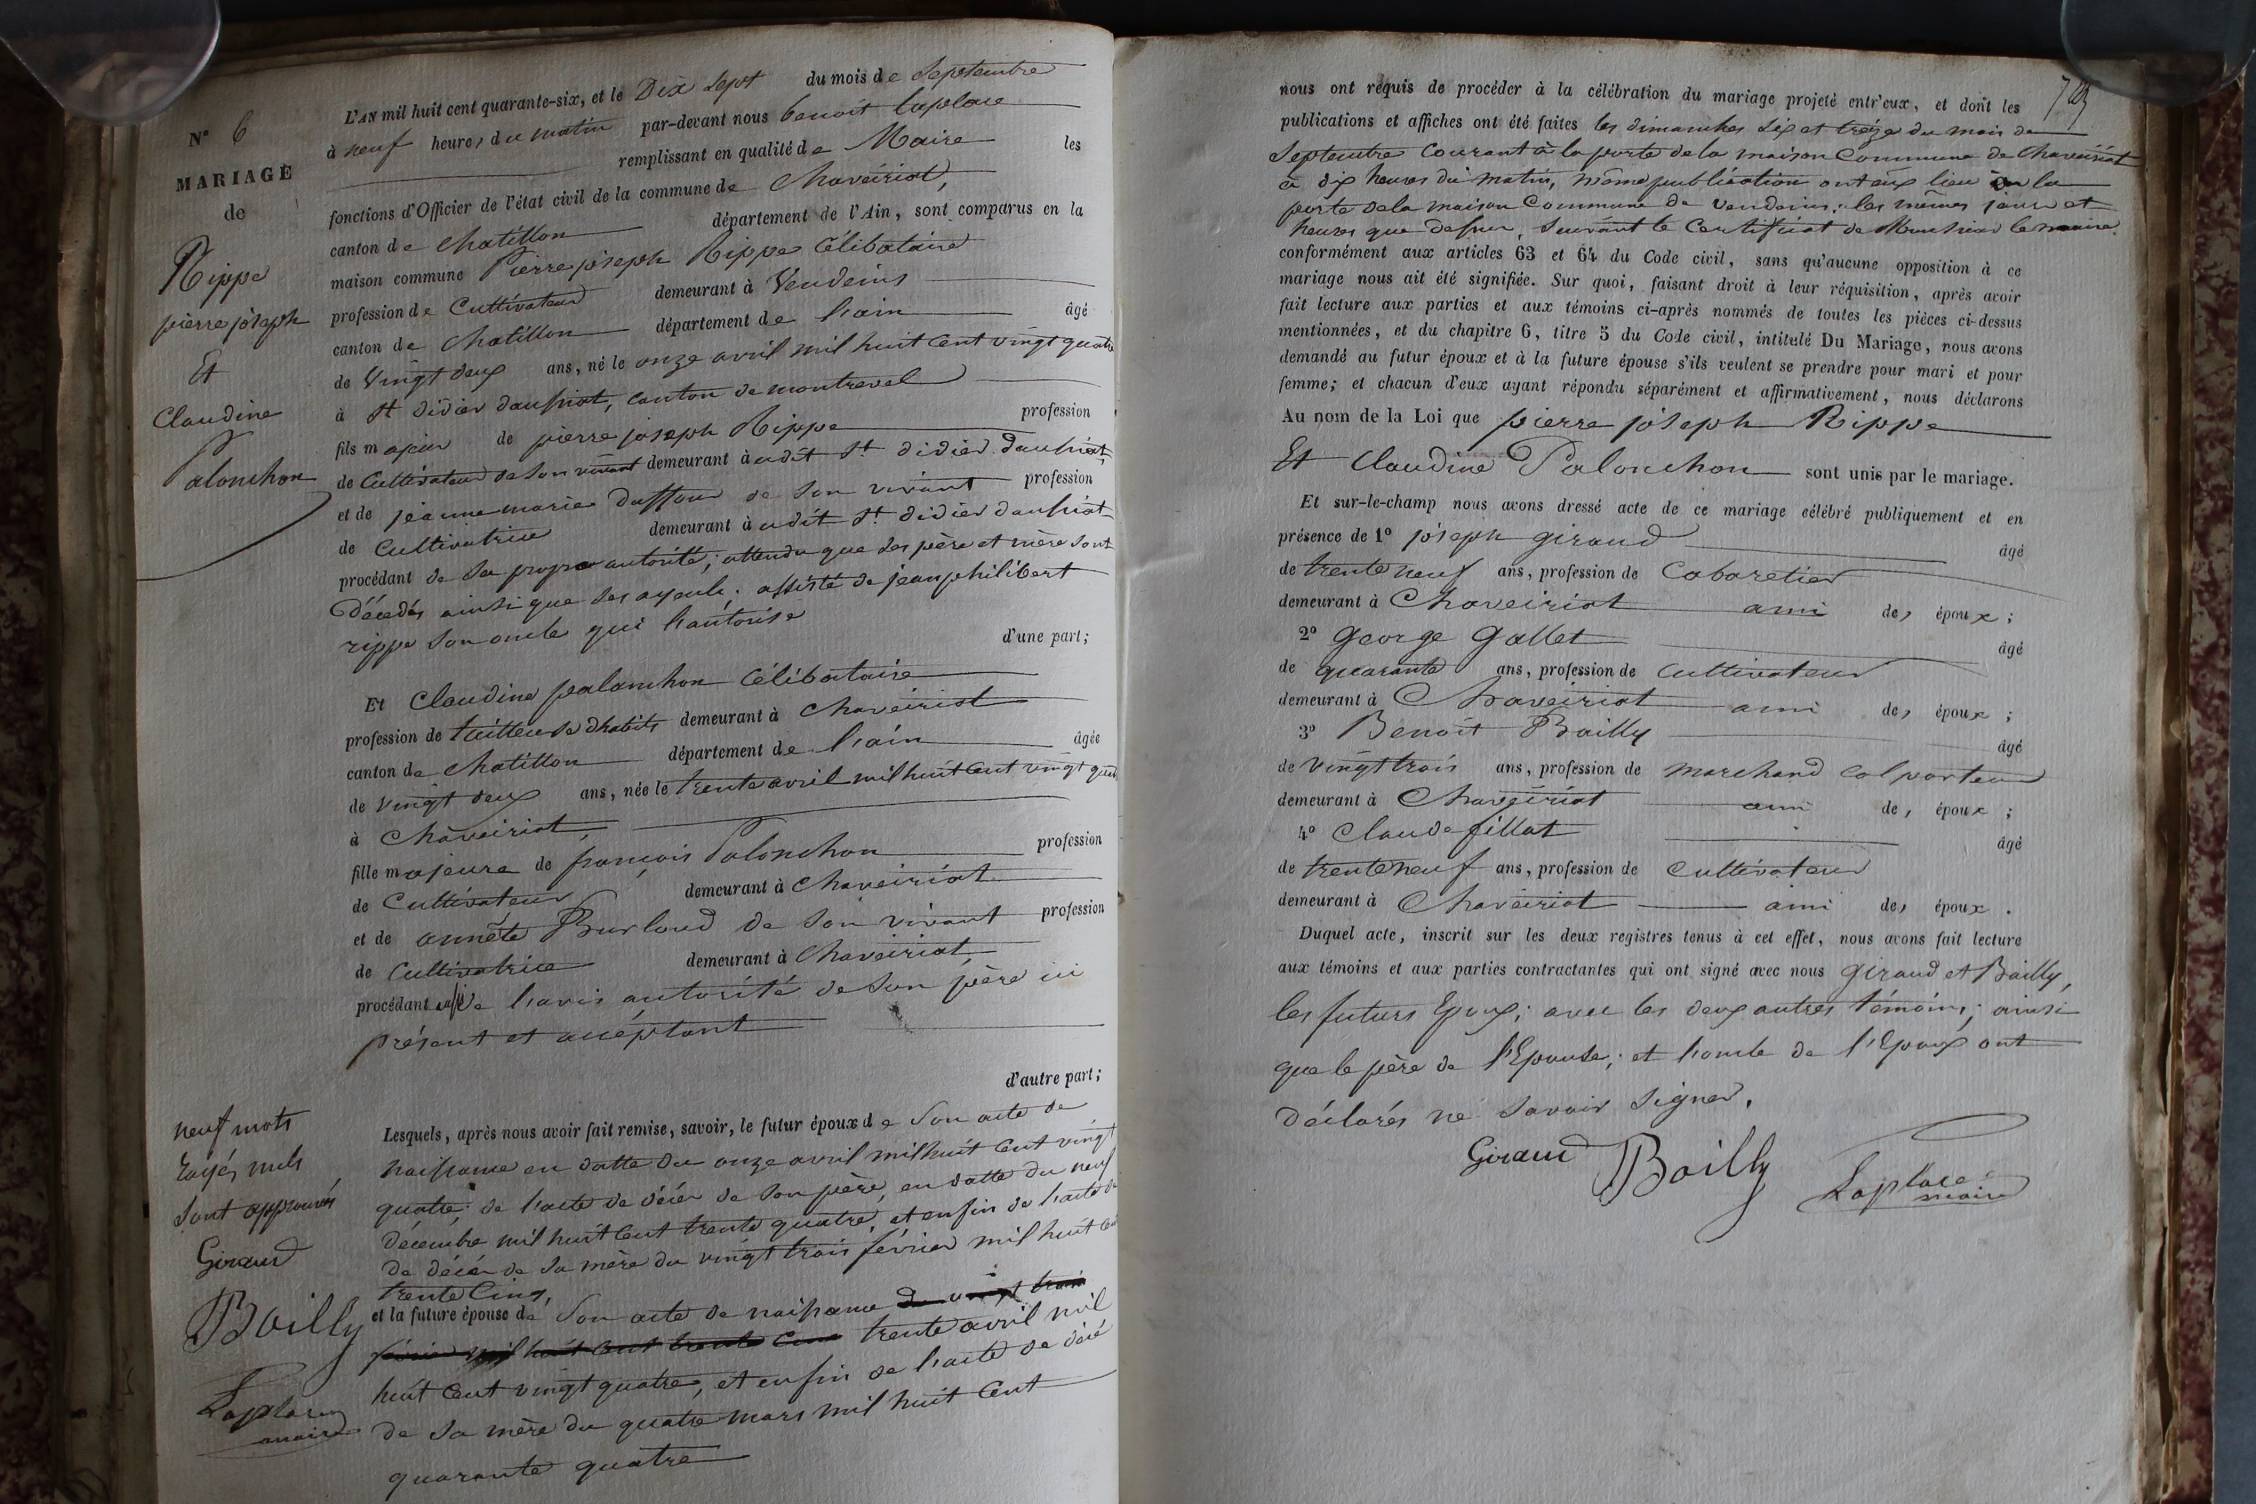 N° 6
MARIAGE
de
Rippe
pierre joseph
Et
Claudine
Palonchon
L'AN mil huit cent quarante-six, et le Dix sept du mois de Septembre
à neuf heures du matin par-devant nous benoit laplace
remplissant en qualité de Maire les
fonctions d'Officier de l'état civil de la commune de Chaveiriat,
canton de chatillon département de l'Ain, sont comparus en la
maison commune Pierre joseph Rippe Célibataire
profession de Cultivateur demeurant à Vendeins
canton de chatillon département de l'ain âgé
de Vingt deux ans, né le onze avril mil huit Cent vingt quatre
à St didier daussiat, canton de montrevel
fils majeur de pierre joseph Rippe profession
de Cultivateur de son vivant demeurant à udit St didier daussiat,
et de jeanne marie Duffour de son vivant profession
de Cultivatrice demeurant à udit St didier daussiat
procédant de sa propre autorité; attendu que ses père et mère sont
Décedés ainsi que ses ayeuls; assisté de jean philibert
rippe son oncle qui l'autorise
d'une part;
Et Claudine palonchon Célibataire
profession de tailleuse dhabits demeurant à Chaveiriat
canton de chatillon département de l'ain âgée
de vingt deux ans, née le trente avril mil huit Cent vingt quatre
à Chaveiriat,
fille majeure de françois Palonchon profession
de Cultivateur demeurant à Chaveiriat
et de annéte Burloud de son vivant profession
de Cultivatrice demeurant à Chaveiriat,
procédant de l'avis autorité de son père ici
présent et acceptant
d'autre part;
Lesquels, après nous avoir fait remise, savoir, le futur époux de Son acte de
naissance en datte du onze avril mil huit Cent vingt
quatre; de l'acte de décés de son père, en datte du neuf
décembre mil huit Cent trente quatre, et enfin de l'acte de
de décés de sa mère du vingt trois février mil huit Cent
trente Cinq,
et la future épouse de Son acte de naissance du vingt trois
février mil huit Cent trente Cinq trente avril mil
huit Cent vingt quatre, et enfin de l'acte de décé
de sa mère du quatre mars mil huit Cent
quarante quatre
neuf mots
rayés nuls
sont approuvés
Giraud
Bailly
Laplace
maire
nous ont requis de procéder à la célébration du mariage projeté entr'eux, et dont les
publications et affiches ont été faites les dimanches six et treize du mois de
Septembre Courant à la porte de la maison Commune de Chaveiriat
à dix heures du matin, même publication ont eux lieu à la
porte de la maison Commune de Vendeins, les mêmes jours et
heures que dessus, suivant le Certificat de Monsieur le maire.
conformément aux articles 63 et 64 du Code civil, sans qu'aucune opposition à ce
mariage nous ait été signifiée. Sur quoi, faisant droit à leur réquisition, après avoir
fait lecture aux parties et aux témoins ci-après nommés de toutes les pièces ci-dessus
mentionnées, et du chapitre 6, titre 5 du Code civil, intitulé Du Mariage, nous avons
demandé au futur époux et à la future épouse s'ils veulent se prendre pour mari et pour
femme; et chacun d'eux ayant répondu séparément et affirmativement, nous déclarons
Au nom de la Loi que pierre joseph Rippe
Et Claudine Palonchon sont unis par le mariage.
Et sur-le-champ nous avons dressé acte de ce mariage célébré publiquement et en
présence de 1° joseph giraud âgé
de trente neuf ans, profession de Cabaretier
demeurant à Chaveiriat ami des époux;
2° george gallet âgé
de quarante ans, profession de Cultivateur
demeurant à Chaveiriat ami des époux;
3° Benoit Bailly âgé
de vingt trois ans, profession de marchand colporteur
demeurant à Chaveiriat ami des époux;
4° Claude fillat âgé
de trente neuf ans, profession de Cultivateur
demeurant à Chaveiriat ami des époux.
Duquel acte, inscrit sur les deux registres tenus à cet effet, nous avons fait lecture
aux témoins et aux parties contractantes qui ont signé avec nous giraud et Bailly,
les futurs Epoux; avec les deux autres témoins; ainsi
que le père de l'Epouse; et l'oncle de l'Epoux ont
déclarés ne savoir signer.
Giraud Bailly Laplace
maire